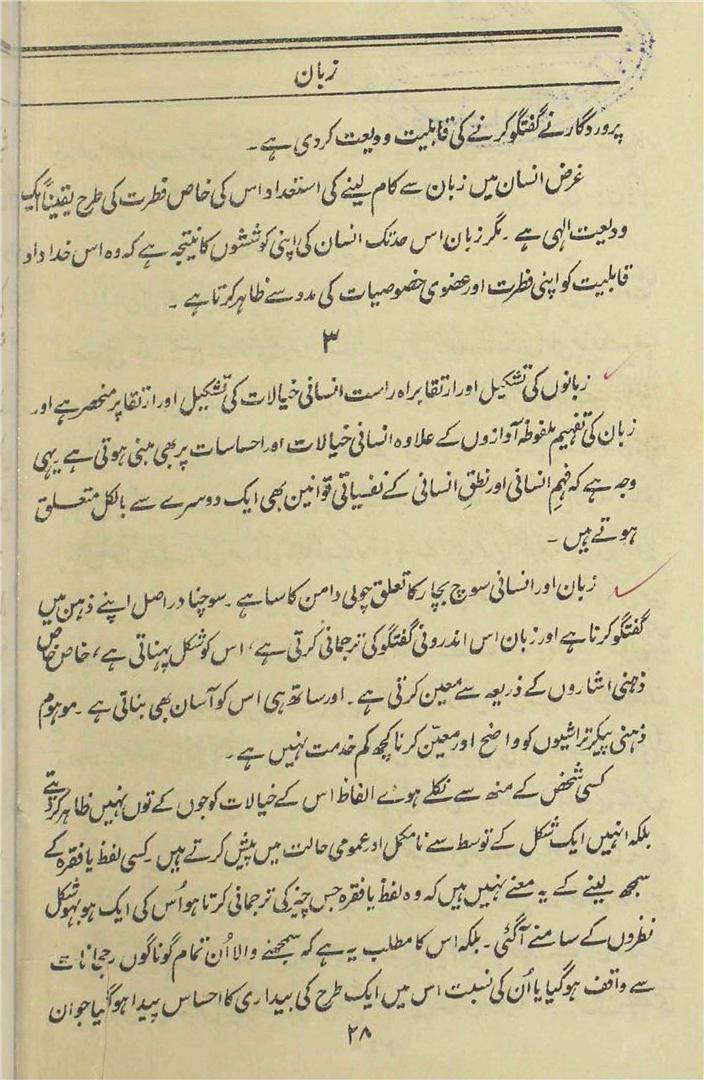 زبان
پروردگار نے گفتگو کرنے کی قابلیت ودیعت کردی ہے ۔
غرض انسان میں زبان سے کام لینے کی استعداد اس کی خاص فطرت کی طرح یقیناً ایک
ودیعت الٰہی ہے ۔ مگر زبان اس حد تک انسان کی اپنی کوششوں کا نتیجہ ہے کہ وہ اس خداداد
قابلیت کو اپنی فطرت اور عضوی خصوصیات کی مدد سے ظاہر کرتا ہے ۔
۳
زبانوں کی تشکیل اور ارتقا براہ راست انسانی خیالات کی تشکیل اور ارتقا پر منحصر ہے اور
زبان کی تفہیم ملفوظہ آوازوں کے علاوہ انسانی خیالات اور احساسات پر بھی مبنی ہوتی ہے یہی
وجہ ہے کہ فہمِ انسانی اور نطقِ انسانی کے نفسیاتی قوانین بھی ایک دوسرے سے بالکل متعلق
ہوتے ہیں ۔
زبان اور انسانی سوچ بچار کا تعلق چولی دامن کا سا ہے ۔ سوچنا دراصل اپنے ذہن میں
گفتگو کرنا ہے اور زبان اس اندرونی گفتگو کی ترجمانی کرتی ہے ، اس کو شکل پہناتی ہے ، خاص خاص
ذہنی اشاروں کے ذریعہ سے معین کرتی ہے ۔ اور ساتھ ہی اس کو آسان بھی بناتی ہے ۔ موہوم
ذہنی پیکر تراشیوں کو واضح اور معیّن کرنا کچھ کم خدمت نہیں ہے ۔
کسی شخص کے منھ سے نکلے ہوے الفاظ اس کے خیالات کو جوں کے توں نہیں ظاہر کردیتے
بلکہ انہیں ایک شکل کے توسط سے نامکمل اور عمومی حالت میں پیش کرتے ہیں ۔ کسی لفظ یا فقرہ کے
سمجھ لینے کے یہ معنے نہیں ہیں کہ وہ لفظ یا فقرہ جس چیز کی ترجمانی کرتا ہو اُس کی ایک ہو بہو شکل
نظروں کے سامنے آگئی ۔ بلکہ اس کا مطلب یہ ہے کہ سمجھنے والا اُن تمام گوناگوں رجحانات
سے واقف ہوگیا یا اُن کی نسبت اس میں ایک طرح کی بیداری کا احساس پیدا ہوگیا جو ان
۲۸